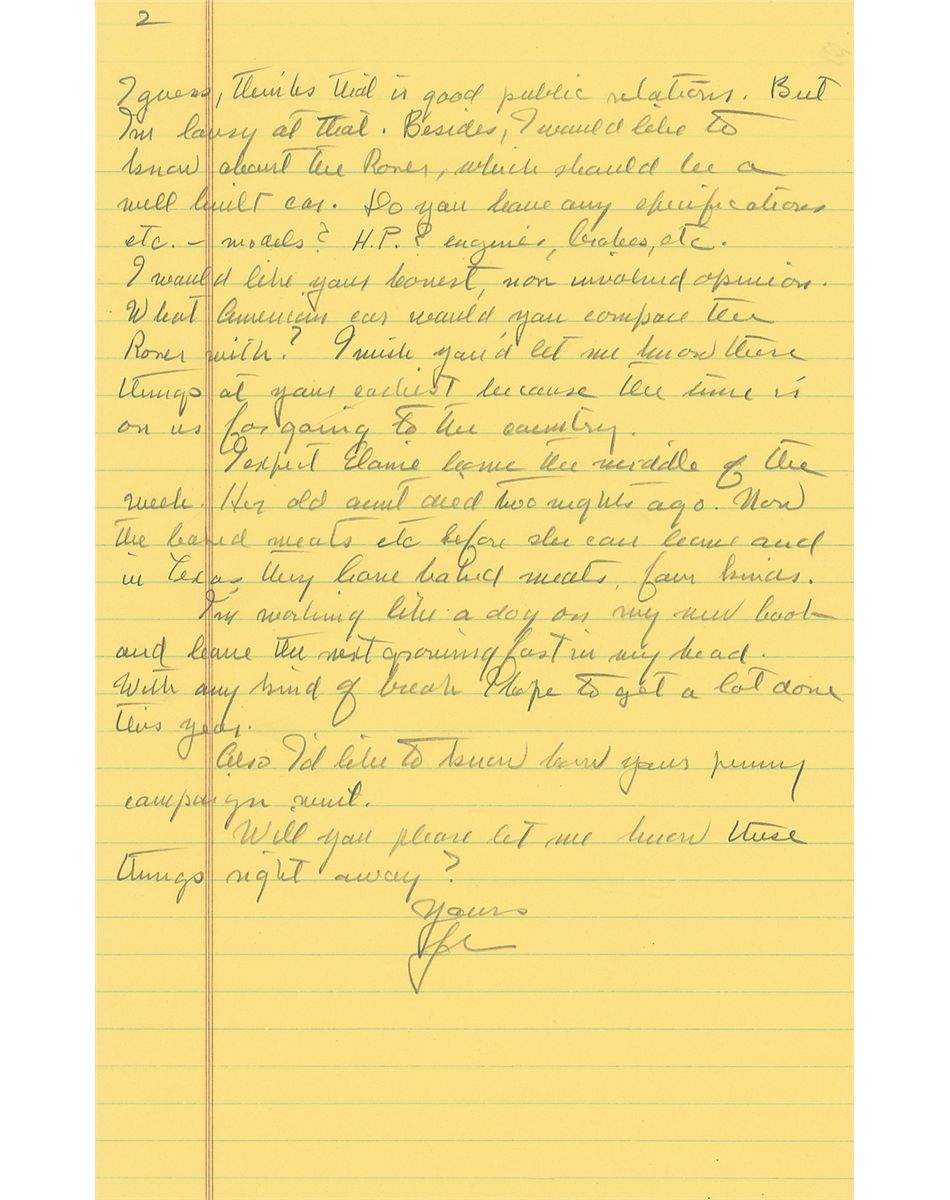 2
I guess, thinks that is good public relations. But
I'm lousy at that. Besides, I would like to
know about the Rover, which should be a
well built car. Do you have any specifications
etc. – models? H.P.? engines, brakes, etc.
I would like your honest, non involved opinion.
What American car would you compare the
Rover with? I wish you'd let me know these
things at your earliest because the time is
on us for going to the country.
I expect Elaine home the middle of the
week. Her old aunt died two nights ago. Now
the baked meats etc before she can leave and
in Texas they have baked meats, four kinds.
I'm working like a dog on my new book
and have the next growing fast in my head.
With any kind of break I hope to get a lot done
this year.
Also I'd like to know how your
campaign went.
Will you please let me know these
things right away?
Yours